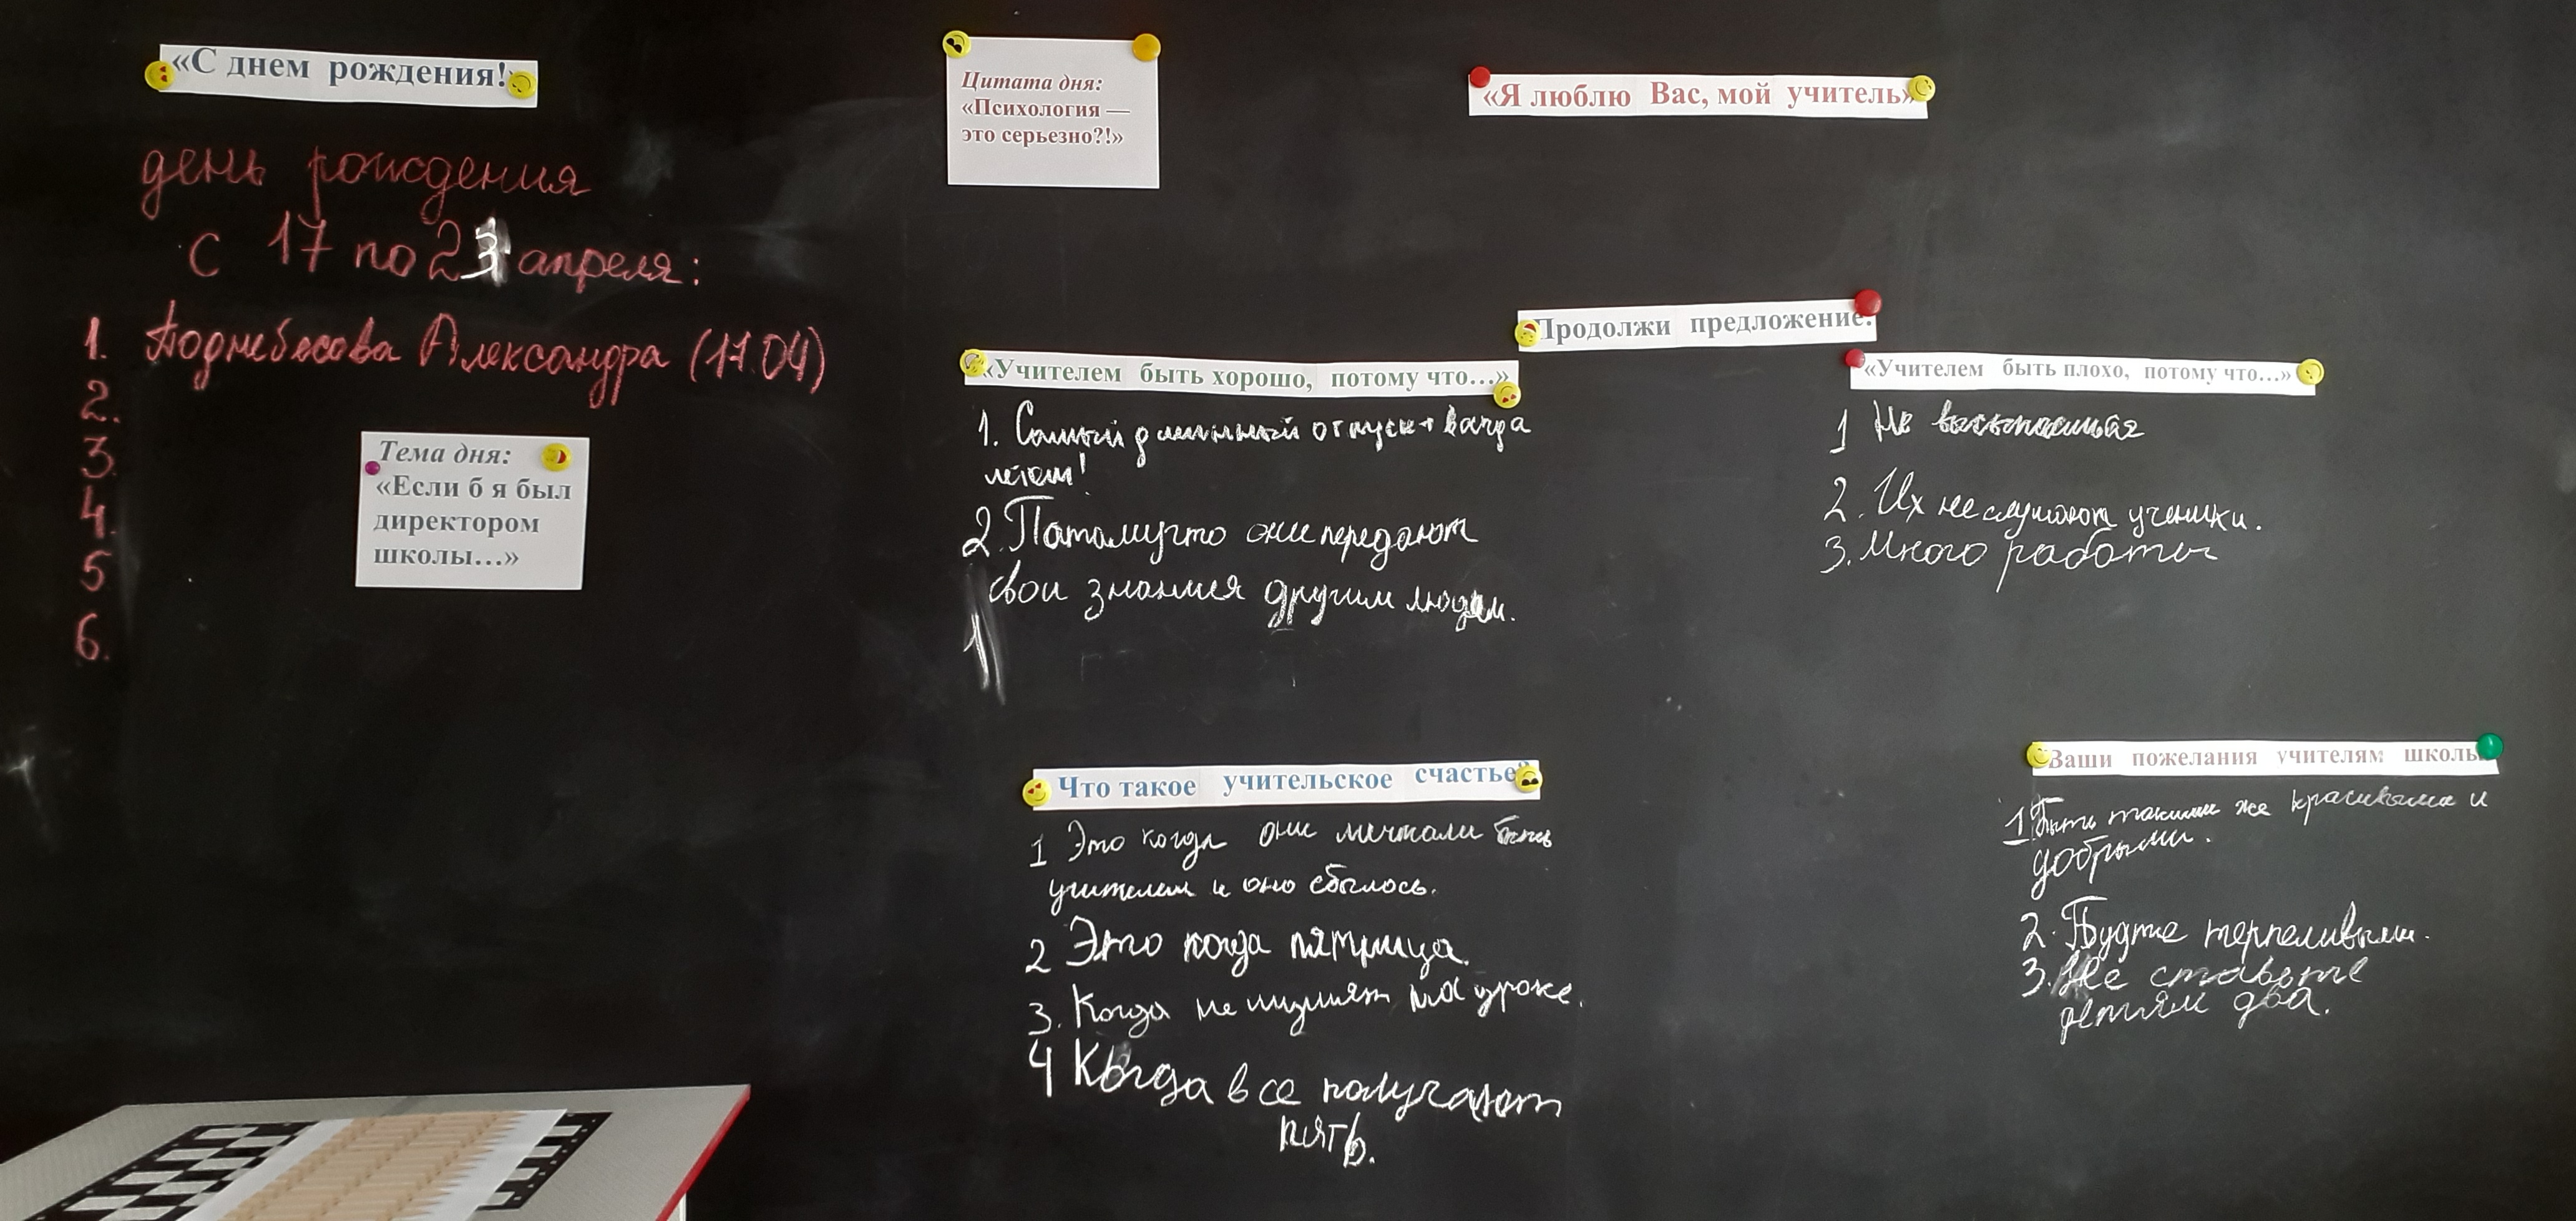 «С днем рождения!»
день рождения
с 17 по 23 апреля:
1. Поднебесова Александра (17.04)
2.
3.
4.
5
6.
Тема дня:
«Если б я был
директором
школы…»
Цитата дня:
«Психология —
это серьезно?!»
«Я люблю Вас, мой учитель»
Продолжи предложение:
«Учителем быть хорошо, потому что…»
1. Самый длинный отпуск +
летом!
2. Патамучто они передают
свои знания другим людям.
«Учителем быть плохо, потому что…»
1 Не
2. Их не слушают ученики.
3. Много работы
Что такое учительское счастье?
1 Это когда они мечтали быть
учителем и оно сбылось.
2 Это когда пятница.
3. Когда не шумят на уроке.
4 Когда все получают
пять.
Ваши пожелания учителям школы
1 Быть такими же красивыми и
добрыми.
2. Будте терпеливыми.
3. Не ставьте
детям два.